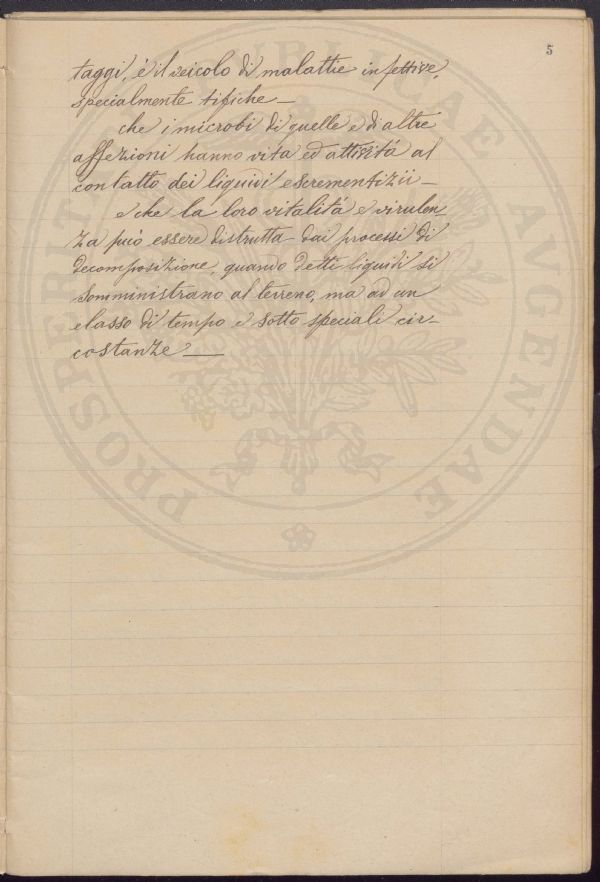 5
taggi, è il veicolo di malattie infettive,
specialmente tifiche —
che i microbi di quelle e di altre
affezioni hanno vita ed attività al
contatto dei liquidi escrementizii —
e che la loro vitalità e virulen-
za può essere distrutta dai processi di
decomposizione, quando detti liquidi si
somministrano al terreno, ma ad un
elasso di tempo e sotto speciali cir-
costanze —
PROSPERITATI PUBLICAE AVGENDAE